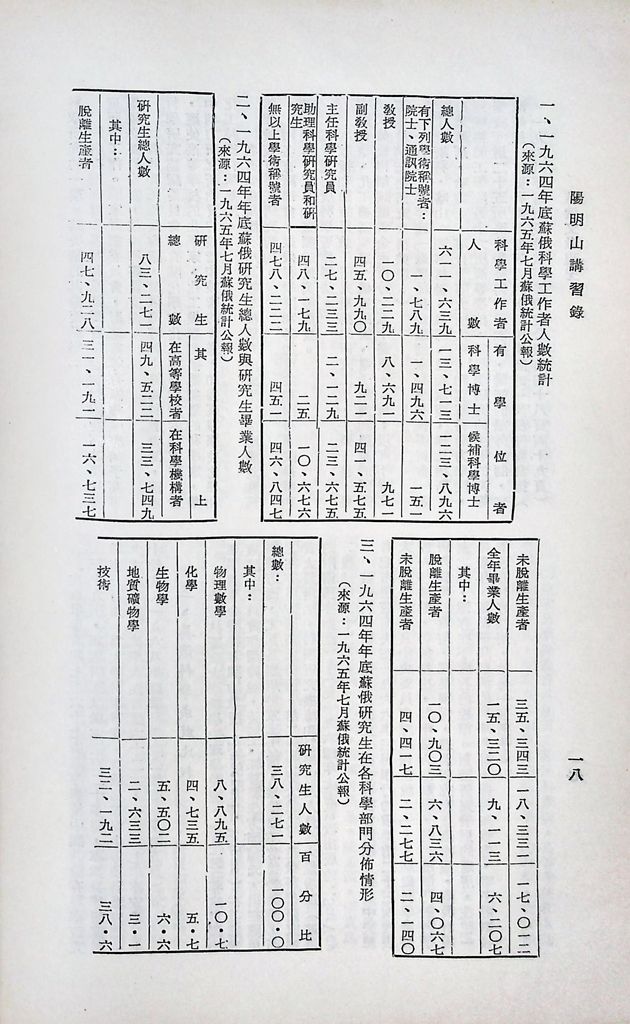 陽明山講習錄
一八
一、一九六四年底蘇俄科學工作者人數統計
（來源：一九六五年七月蘇俄統計公報）
科學工作者人數
有學位者
科學博士
候補科學博士
總人數 六一一、六三九 一三、七一三 一二三、八九六
有下列學術稱號者：
院士、通訊院士 一、七八九 一、四九六 一五一
教授 一〇、二二九 八、六九一 九七一
副教授 四五、九九〇 九二一 四一、五七五
主任科學研究員 二七、二三三 二、一二九 二三、六七五
助理科學研究員和研究生 四八、一七九 二五 一〇、六七六
無以上學術稱號者 四七八、二二二 四五一 四六、八四七
二、一九六四年年底蘇俄研究生總人數與研究生畢業人數
（來源：一九六五年七月蘇俄統計公報）
研究生總數
其上
在高等學校者
在科學機構者
研究生總人數 八三、二七一 四九、五二二 三三、七四九
其中：
脫離生產者 四七、九二八 三一、一九一 一六、七三七
未脫離生產者 三五、三四三 一八、三三一 一七、〇一二
全年畢業人數 一五、三二〇 九、一一三 六、二〇七
其中：
脫離生產者 一〇、九〇三 六、八三六 四、〇六七
未脫離生產者 四、四一七 二、二七七 二、一四〇
三、一九六四年年底蘇俄研究生在各科學部門分佈情形
（來源：一九六五年七月蘇俄統計公報）
研究生人數 百分比
總數： 三八、二七一 一〇〇・〇
其中：
物理數學 八、八九五 一〇・七
化學 四、七三五 五・七
生物學 五、五〇二 六・六
地質礦物學 二、六三三 三・一
技術 三二、一九二 三八・六